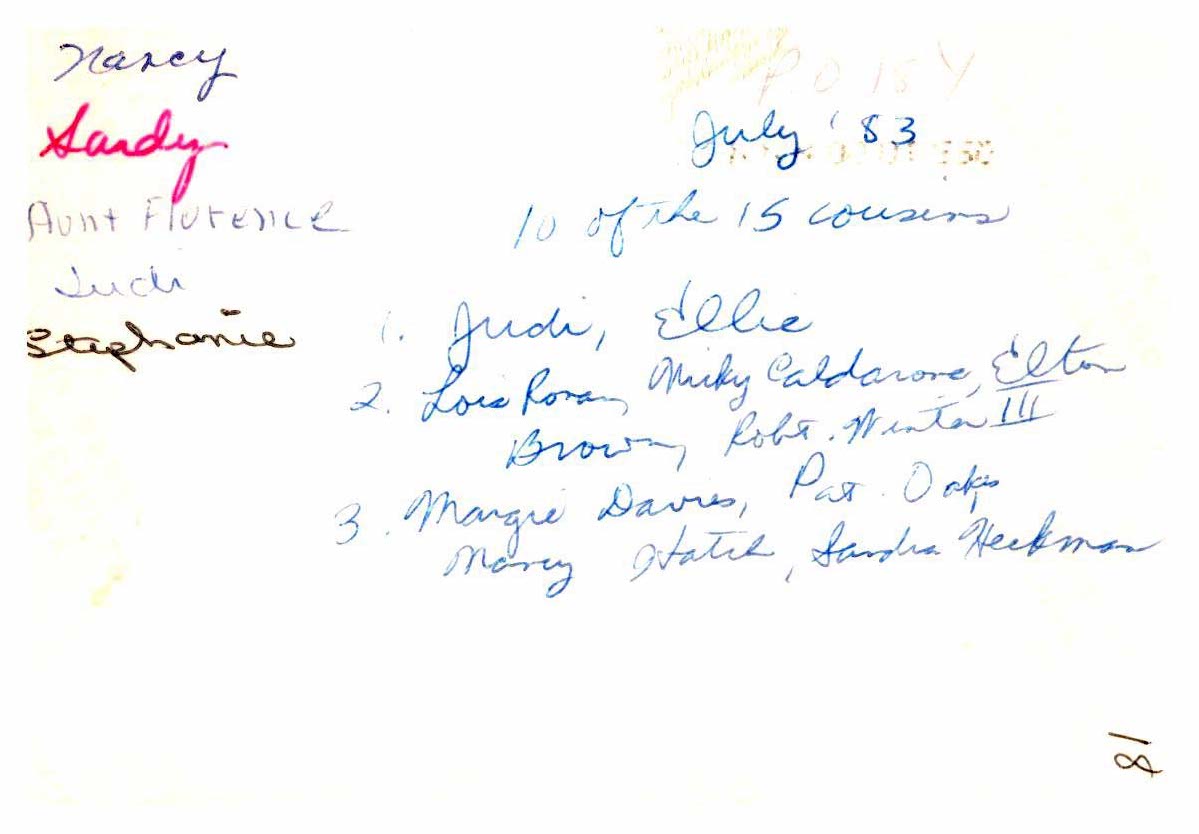 Nancy
Sandy
Aunt Florence
Judi
Stephanie
July '83
10 of the 15 cousins
1. Judi, Ellie
2. Lois Roran, Micky Caldarone, Elton
Brown, Robt. Winter III
3. Margie Davies, Pat Oakes
Nancy Hatch, Sandra Heckman
18